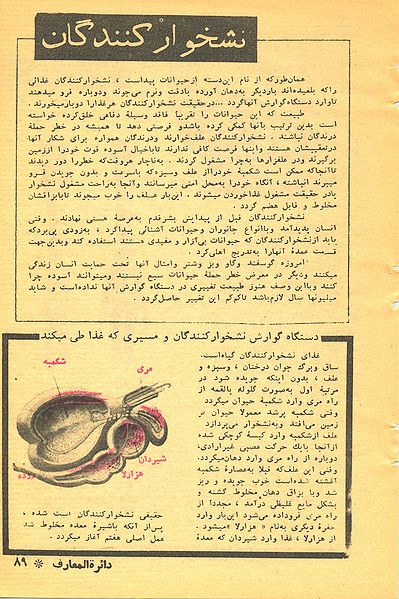 نشخوارکنندگان
همان‌طورکه از نام این‌دسته ازحیوانات پیداست ، نشخوارکنندگان غذائی
را که بلعیده‌اند باردیگر به‌دهان آورده بادقت ونرم می‌جوند ودوباره فرو میدهند
تاوارد دستگاه گوارش آنهاگردد ...درحقیقت نشخوارکنندگان هرغذارا دوبارمیخورند.
طبیعت که این حیوانات را تقریباً فاقد وسیلهٔ دفاعی خلق‌کرده خواسته
است بدین ترتیب بآنها کمکی کرده باشدو فرصتی دهد تا همیشه در خطر حملهٔ
درندگان نباشند . نشخوارکنندگان علف‌خوارند ودرندگان همواره برای شکار آنها
درتعقیبشان هستند واینها فرصت کافی ندارند تاباخیال آسوده قوت خودرا اززمین
برگیرند ودر علفزارها به‌چرا مشغول گردند . به‌ناچار هروقت‌که خطررا دور دیدند
تاآنجاکه ممکن است شکمبهٔ خودرا از علف وسبزه‌که باسرعت و بدون جویدن فرو
میبرند انباشته ، آنگاه خودرا به‌محل امنی میرسانند وآنجا به‌راحت مشغول نشخوار
یادر حقیقت مشغول غذاخوردن میشوند . این‌بار علف را خوب میجوند تابابزاقشان
مخلوط و قابل هضم گردد .
نشخوارکنندگان قبل از پیدایش بشرقدم به‌عرصهٔ هستی نهادند . وقتی
انسان پدیدآمد وباانواع جانوران وحیوانات آشنائی پیداکرد ، به‌زودی پی‌بردکه
باید ازنشخوارکنندگان که حیوانات بی‌آزار و مفیدی هستند استفاده کند وبدین‌جهت
قسمت عمدهٔ آنهارا به‌تدریج اهلی‌کرد .
امروزه گوسفند وگاو وبز وشتر وامثال آنها تحت حمایت انسان زندگی
میکنند ودیگر در معرض خطر حملهٔ حیوانات سبع نیستند ومیتوانند آسوده چرا
کنند وبااین وصف هنوز طبیعت تغییری در دستگاه گوارش آنها نداده‌است و شاید
میلیونها سال لازم‌باشد تاکم‌کم این تغییر حاصل‌گردد .
دستگاه گوارش نشخوارکنندگان و مسیری که غذا طی میکند
غذای نشخوارکنندگان گیاه‌است.
ساق وبرگ جوان درختان ، وسبزه و
علف ، بدون اینکه جویده شود در
مرتبهٔ اول به‌صورت گلوله بالقمه از
راه مری وارد شکمبهٔ حیوان میگردد
وقتی شکمبه پرشد معمولا حیوان بر
زمین می‌افتد وبه‌نشخوار می‌پردازد
علف ازشکمبه وارد کیسهٔ کوچکی شده
ازآنجا بایك حرکت عصبی غیرارادی،
دوباره از راه مری وارد دهان‌میگردد.
وقتی این علف‌که قبلا به‌عصارهٔ شکمبه
آغشته شده‌است خوب جویده و ریز
شد وبا بزاق دهان مخلوط گشته و
بشکل مایع غلیظی درآمد ، مجدداً از
راه مری فروداده می‌شود این‌بار وارد
حفرهٔ دیگری به‌نام « هزارلا »میشود .
از هزارلا ، غذا وارد شیردان که معدهٔ
شکمبه
مری
شیردان
هزارلا
روده
حقیقی نشخوارکنندگان است شده ،
پس‌از آنکه باشیرهٔ معده مخلوط شد
عمل اصلی هضم آغاز میگردد .
دائرة‌المعارف * ۸۹